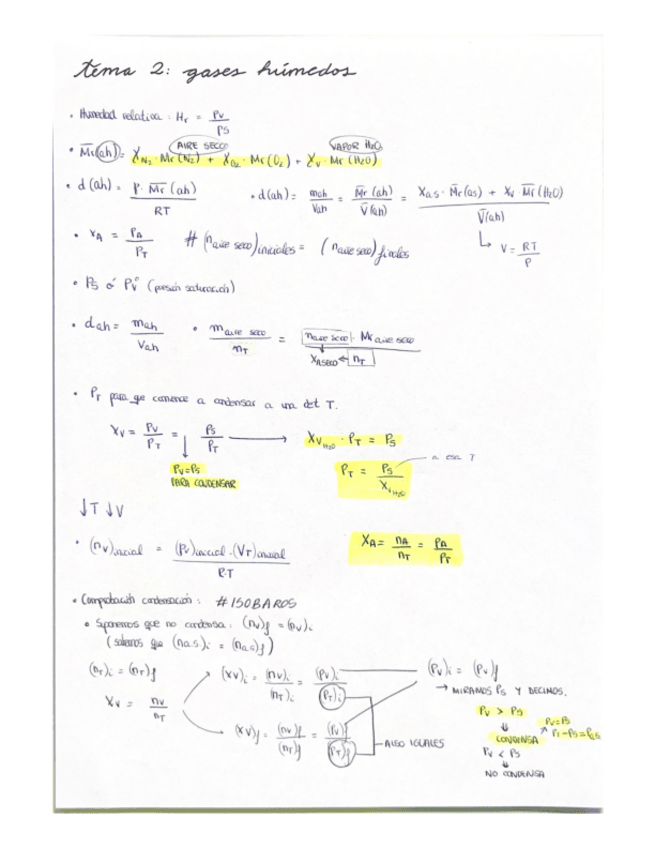 tema 2: gases húmedos
• Humedad relativa: Hr = Pv / Ps
AIRE SECO VAPOR H2O
• M̄r(ah) = XN2 · Mr(N2) + XO2 · Mr(O2) + Xv · Mr(H2O)
• d(ah) = P · M̄r(ah) / RT • d(ah) = mah / Vah = M̄r(ah) / V̄(ah) = Xa.s · M̄r(as) + Xv M̄r(H2O) / V̄(ah)
↳ V = RT / P
• XA = PA / PT # (naire seco)iniciales = (naire seco)finales
• Ps ó Pvº (presión saturación)
• dah = mah / Vah • maire seco / nT = naire seco · Mr aire seco / nT
XASECO ←
• PT para que comience a condensar a una det T.
Xv = Pv / PT = Ps / PT → XvH2O · PT = Ps
Pv=Ps
PARA CONDENSAR
PT = Ps / XvH2O a esa T
↓T ↓V
• (nv)inicial = (Pv)inicial · (VT)inicial / R·T
XA = nA / nT = PA / PT
• Comprobación condensación: #ISOBAROS
• Suponemos que no condensa: (nv)f = (nv)i
(sabemos que (na.s)i = (na.s)f)
(nT)i = (nT)f
Xv = nv / nT
(Xv)i = (nv)i / (nT)i = (Pv)i / (PT)i
(Xv)f = (nv)f / (nT)f = (Pv)f / (PT)f
ALGO IGUALES
(Pv)i = (Pv)f
→ MIRAMOS Ps Y DECIMOS.
Pv > Ps
↓
CONDENSA ↗ Pv=Ps
Pv < Ps
↓
NO CONDENSA